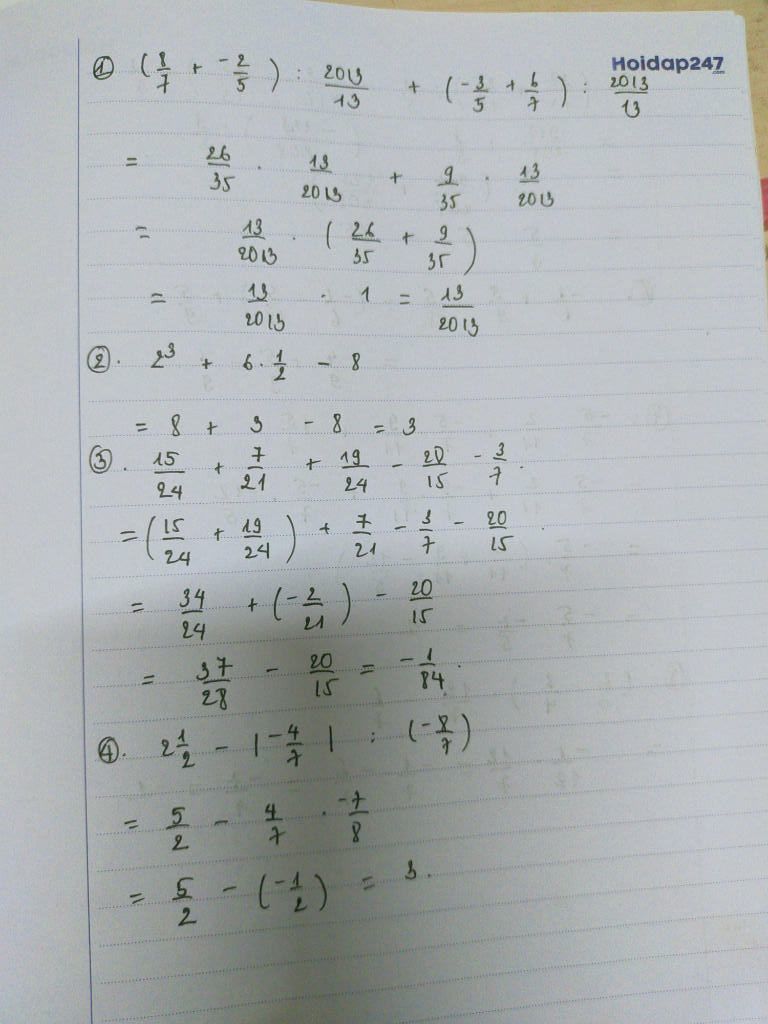 Hoidap247.com
① (8/7 + -2/5) : 2013/13 + (-3/5 + 6/7) : 2013/13
= 26/35 . 13/2013 + 9/35 . 13/2013
= 13/2013 . (26/35 + 9/35)
= 13/2013 . 1 = 13/2013
②. 2³ + 6.1/2 - 8
= 8 + 3 - 8 = 3
③. 15/24 + 7/21 + 19/24 - 20/15 - 3/7.
= (15/24 + 19/24) + 7/21 - 3/7 - 20/15.
= 34/24 + (-2/21) - 20/15
= 37/28 - 20/15 = -1/84.
④. 2 1/2 - |-4/7| : (-8/7)
= 5/2 - 4/7 . -7/8
= 5/2 - (-1/2) = 3.